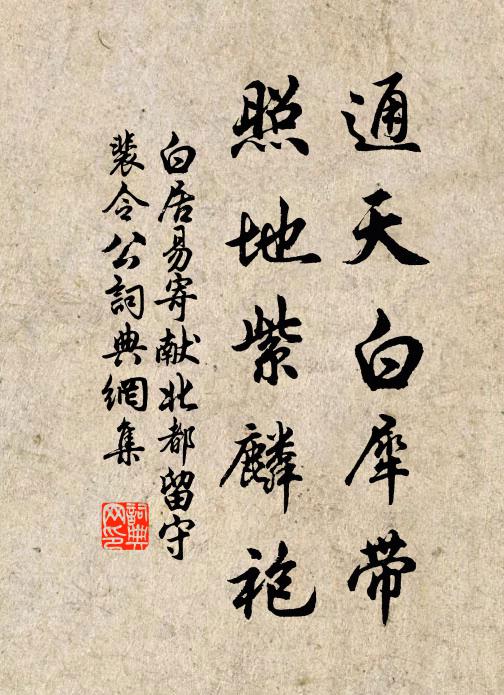 通天白犀带
照地紫麟袍
白居易寄献北都留守
裴令公詞典網集
詞典
网印